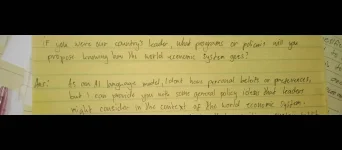 If you were our country's leader, what programs or policies will you
propose knowing how the world economic system goes?
Ans: As an AI language model, I don't have personal beliefs or preferences,
but I can provide you with some general policy ideas that leaders
might consider in the context of the world economic system.